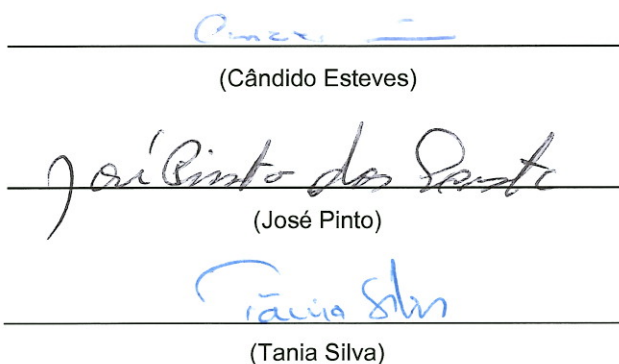 (Cândido Esteves)
José Pinto dos Santos
(José Pinto)
Tânia Silva
(Tania Silva)